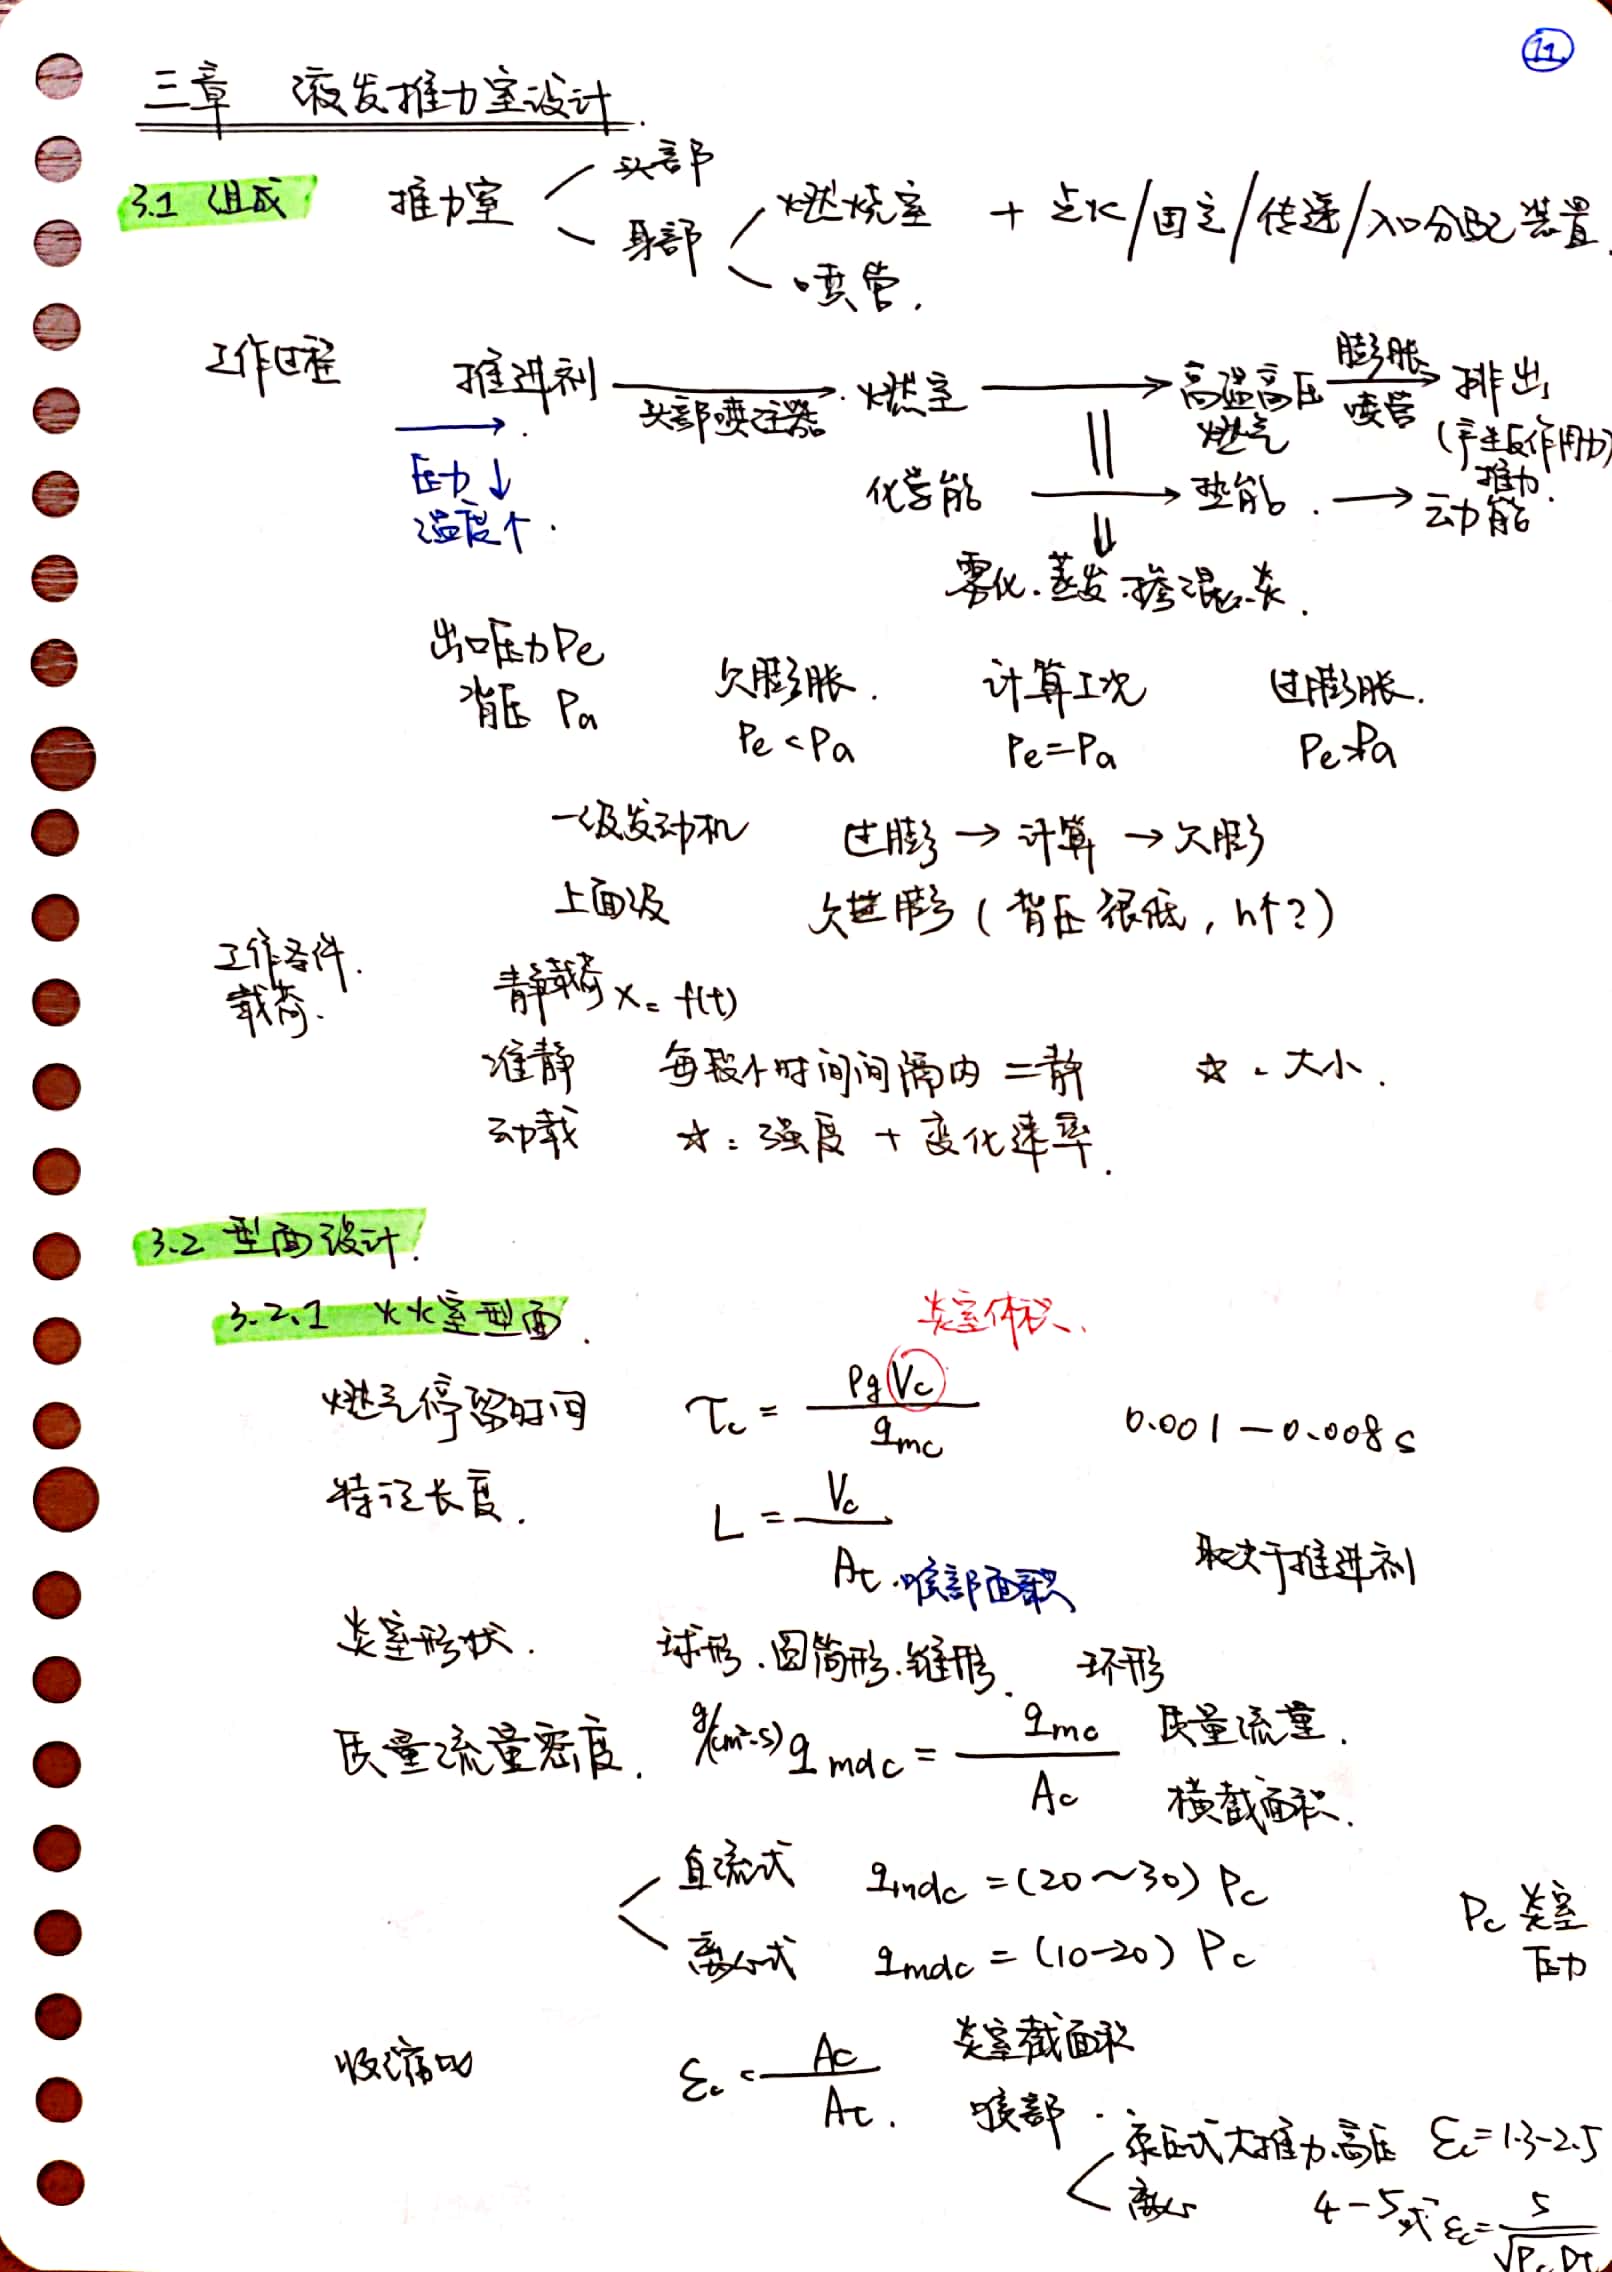 11
三章 液发推力室设计.
3.1 组成 推力室 头部
身部 燃烧室 + 点火/固定/传递/入口分配装置.
喷管.
工作过程 推进剂 头部喷注器 燃室 高温高压燃气 膨胀 喷管 排出
(产生反作用力)
推力.
压力↓
温度↑.
化学能 → 热能. → 动能
雾化.蒸发.掺混.炎.
出口压力Pe
背压 Pa
欠膨胀. 计算工况 过膨胀.
Pe<Pa Pe=Pa Pe>Pa
一级发动机 过膨 → 计算 → 欠膨
上面级 欠膨 (背压很低, h↑?)
工作条件.
载荷. 静载荷 x=f(t)
准静 每段小时间间隔内=静 ☆.大小.
动载 ☆:强度+变化速率.
3.2 型面设计.
3.2.1 火火室型面.
炎室体积.
燃气停留时间 τc = ρgVc / qmc 0.001-0.008s
特征长度. L = Vc / At.喉部面积 取决于推进剂
炎室形状. 球形.圆筒形.锥形. 环形
质量流量密度. g/(cm²·s) qmdc = qmc / Ac 质量流量. 横截面积.
直流式 qmdc =(20~30) Pc
离心式 qmdc = (10-20) Pc
Pc 炎室
压力
收缩比 εc = Ac / At. 炎室截面积 喉部.
泵压式大推力.高压 εc=1.3-2.5
离心 4-5或 εc= 5 / √Pc Dt